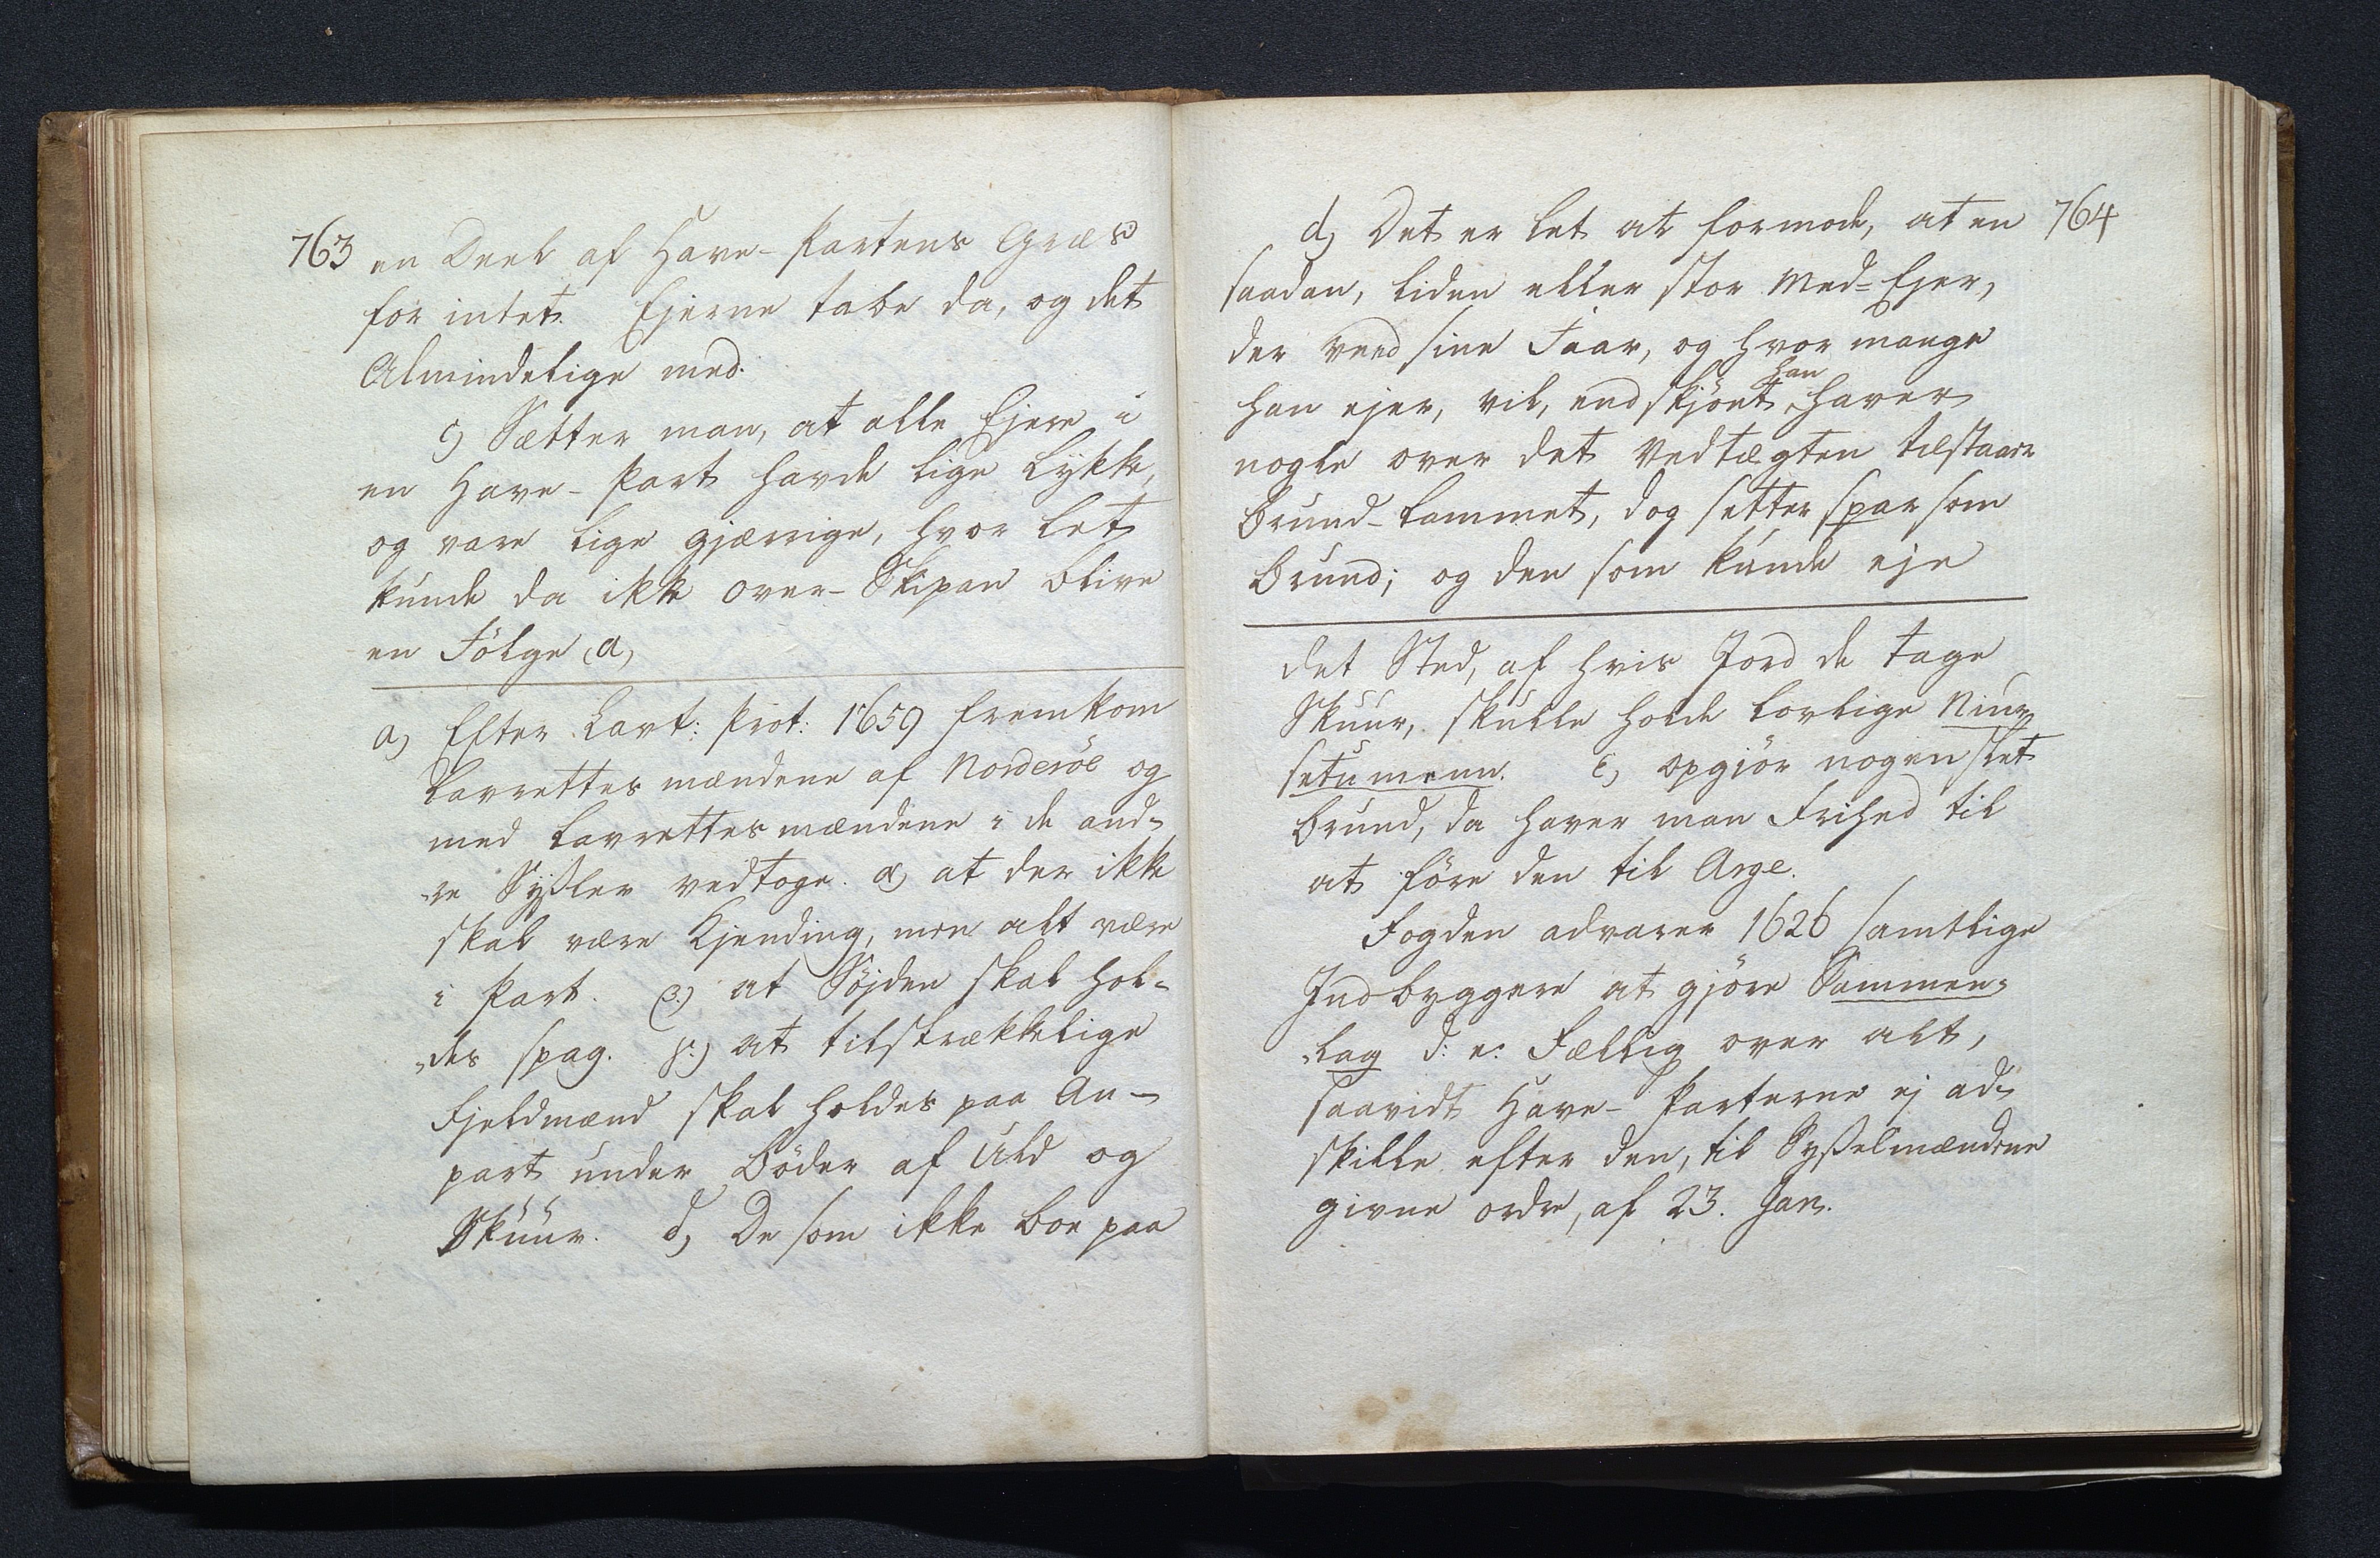 763
en Deel af Have-Partens Græs
for intet. Ejerne tabe da, og det
Almindelige med.
c) Sætter man, at alle Ejere i
en Have-Part havde lige Lykke,
og vare lige gjærrige, hvor let
kunde da ikke over-Skipan blive
en Følge (a)
a) Efter Lavt: Prot: 1659 fremkom
Lavrettesmændene af Norderöe og
med Lavrettesmændene i de and-
-re Sysler vedtoge. α) at der ikke
skal være Kjending, men alt være
i Part. β.) at Søjden skal hol-
-des spag. γ.) at tilstrækkelige
Fjeldmænd skal holdes paa An-
part under Böder af Uld og
Skuur. δ) De som ikke boe paa
764
d) Det er let at formode, at en
saadan, liden eller stor Med-Ejer,
der veed sine Faar, og hvor mange
han ejer, vil, endskjönt han haver
nogle over det Vedtægten tilstaaede
Brund-Lammet, dog setter spar som
Brund; og den som kunde eje
det Sted, af hvis Jord de tage
Skuur, skulle holde lovlige
setumenn. ε) opgiör nogen slet
Brund, da haver man Frihed til
at före den til Arge.
Fogden advarer 1626 samtlige
Indbyggere at gjöre Sammen-
-lag d: e: Fællig over alt,
saavidt Have-Parterne ej ad-
skille efter den, til Sysselmændene
givne ordre, af 23. Jan.